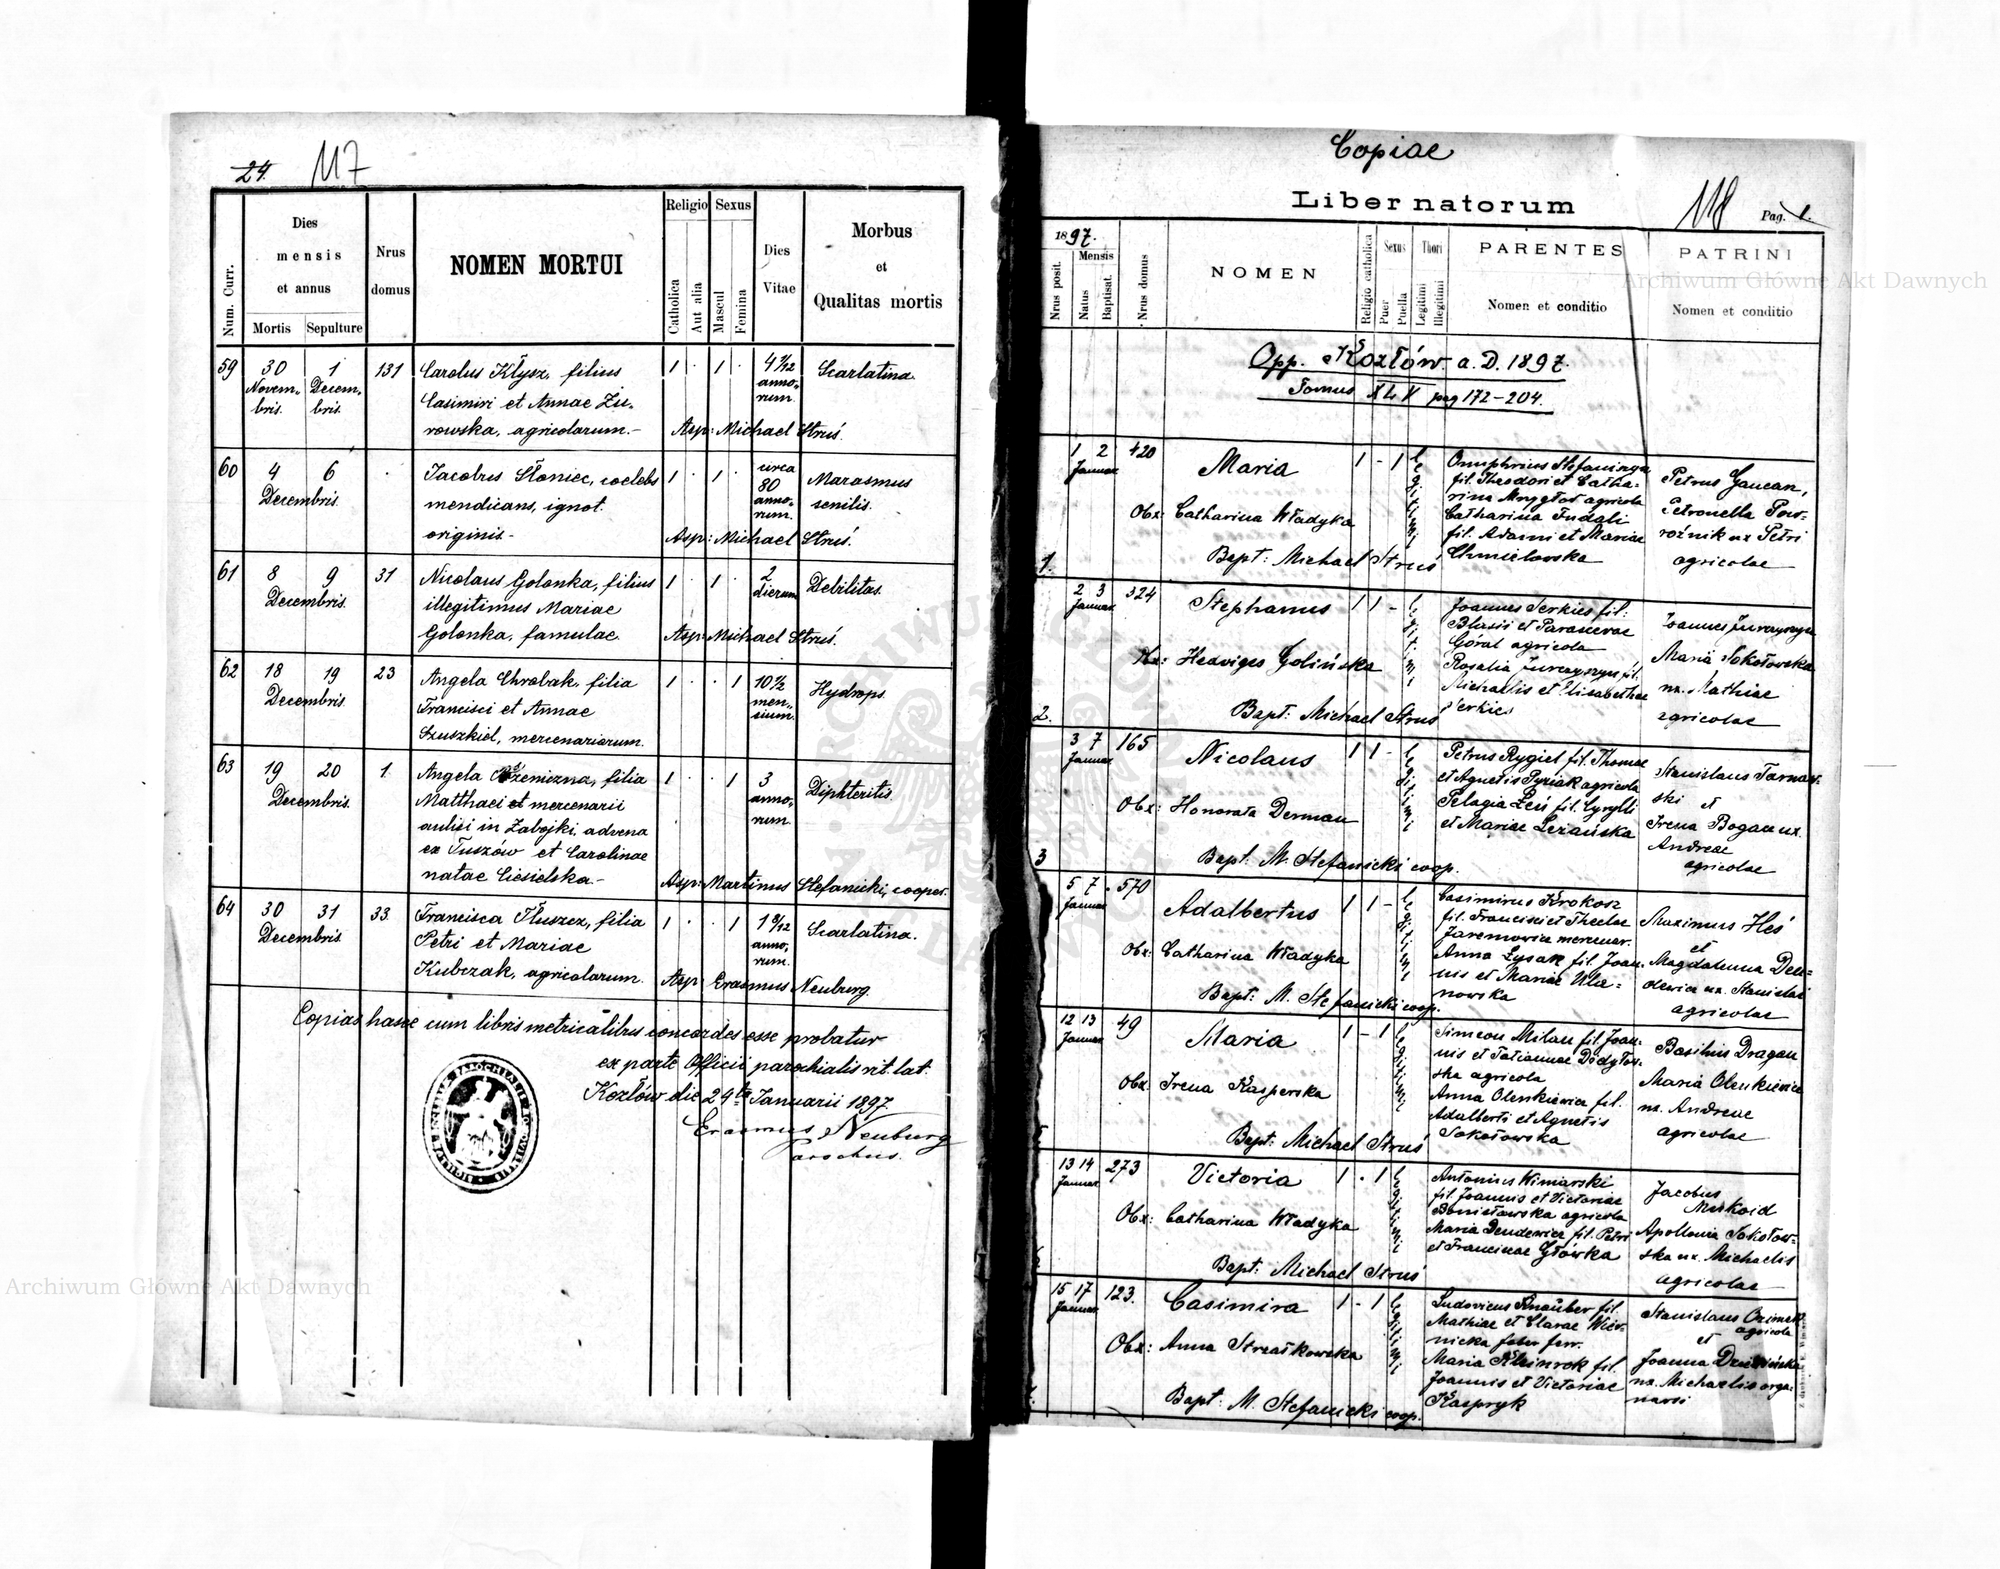 24. 117
Num. Curr.
Dies
mensis
et annus
Mortis Sepulture
Nrus
domus
NOMEN MORTUI
Religio Sexus
Catholica
Aut alia
Mascul
Femina
Dies
Vitae
Morbus
et
Qualitas mortis
59 30 1 131 Carolus Kłysz, filius 1 · 1 · 4 1/12 Scarlatina.
Novem- Decem- Casimiri et Annae Żu- anno-
bris. bris. rowska, agricolarum.- rum.
Asp: Michael Struś.
60 4 6 · Jacobus Słoniec, coelebs 1 · 1 · circa 80 Marasmus
Decembris. mendicans, ignot. anno- senilis.
originis.- rum.
Asp: Michael Struś.
61 8 9 31 Nicolaus Golonka, filius 1 · 1 · 2 Debilitas.
Decembris. illegitimus Mariae dierum
Golonka, famulae. Asp: Michael Struś.
62 18 19 23 Angela Chrobak, filia 1 · · 1 10 1/2 Hydrops.
Decembris. Francisci et Annae men-
Szuszkiel, mercenariorum. sium.
63 19 20 1. Angela filia 1 · · 1 3 Diphteritis.
Decembris. Matthaei et mercenarii anno-
aulici in Zabojki, advena rum.
ex Tuszów et Carolinae
natae Ciesielska.- Asp: Martinus Stefanicki, cooper.
64 30 31 33. Francisca Tłuszcz, filia 1 · · 1 Scarlatina.
Decembris. Petri et Mariae anno-
Kubczak, agricolarum. rum.
Asp: Erasmus Neuburg.
Copias hasce cum libris metricalibus concordes esse probatur
ex parte Officii parochialis rit. lat.
Kozłów die 24ta Januarii 1897.
Erasmus Neuburg
Parochus.
Copiae
Liber natorum
118 Pag. 1.
1897.
Nrus posit.
Mensis
Natus
Baptisat.
Nrus domus
NOMEN
Religio catholica
Sexus
Puer
Puella
Thori
Legitimi
Illegitimi
PARENTES
Nomen et conditio
PATRINI
Nomen et conditio
Opp. Kozłów a. D. 1897.
Tomus XLV pag 172-204.
1. 1 2 420 Maria 1 - 1 legitimi
Januar.
Obx: Catharina Władyka
Bapt: Michael Struś
Onuphrius Stefaniszyn
fil. Theodori et Catha-
rina Mrygłot agricola
Catharina Fudali
fil. Adami et Mariae
Chmielowska
Petrus Gaucan,
Petronella Pow-
roźnik ux Petri
agricolae
2. 2 3 324 Stephanus 1 1 - legitimi
Januar.
Obx: Hedviges Golińska
Bapt: Michael Struś
Joannes Serkies fil:
Blasii et Parascevae
Góral agricola
Rosalia Jurczyszyn fil.
Michaelis et Elisabethae
Serkies
Joannes Jurczyszyn
Maria Sokołowska
ux. Mathiae
agricolae
3 3 7 165 Nicolaus 1 1 - legitimi
Januar.
Obx: Honorata Derman
Bapt: M. Stefanicki coop.
Petrus Rygiel fil. Thomae
et Agnetis Pyziak agricola
Pelagia Leń fil. Cyrylli
et Mariae Leżańska
Stanislaus Tarnaw-
ski et
Irena Bogan ux.
Andreae
agricolae
5 7 570 Adalbertus 1 1 - legitimi
Januar.
Obx: Catharina Władyka
Bapt: M. Stefanicki coop.
Casimirus Krokosz
fil. Francisci et Theclae
Jaremowicz mercenar.
Anna Łysak fil. Joan-
nis et Mariae Ula-
nowska
Maximus Heś
et
Magdalenna Den-
dewicz ux. Stanislai
agricolae
12 13 49 Maria 1 - 1 legitimi
Januar.
Obx: Irena Kasperska
Bapt: Michael Struś
Simeon Milan fil. Joan-
nis et Tatiannae Dodyłow-
ska agricola
Anna Olenkiewicz fil.
Adalberti et Agnetis
Sokołowska
Basilius Dragan
Maria Olenkiewicz
ux. Andreae
agricolae
13 14 273 Victoria 1 · 1 legitimi
Januar.
Obx: Catharina Władyka
Bapt: Michael Struś
Antonius Winiarski
fil. Joannis et Victoriae
Bonisławska agricola
Maria Dendewicz fil. Petri
et Franciscae Główka
Jacobus
Mokoid
Apollonia Sokołow-
ska ux. Michaelis
agricolae
15 17 123. Casimira 1 - 1 legitimi
Januar.
Obx: Anna Strzałkowska
Bapt: M. Stefanicki coop.
Ludovicus Knauber fil.
Mathiae et Clarae Wier-
nicka faber ferr.
Maria Kleinrok fil.
Joannis et Victoriae
Kaspryk
Stanislaus
agricola
et
Joanna
ux. Michaelis orga-
narii
Archiwum Główne Akt Dawnych
Archiwum Główne Akt Dawnych